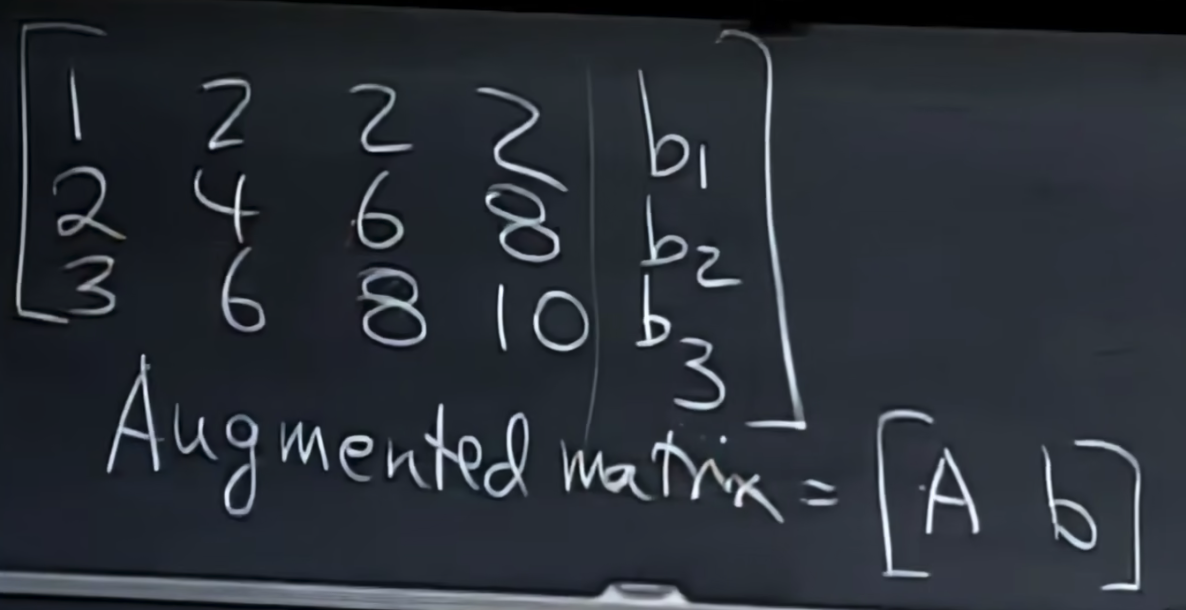 1 2 2 2 b1
2 4 6 8 b2
3 6 8 10 b3
Augmented matrix = [A b]